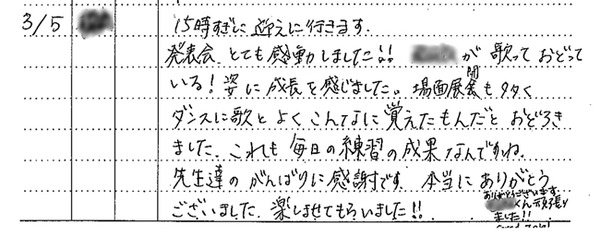 3/5 15時すぎに迎えに行きます.
発表会、とても感動しました!! が歌っておどって
いる!姿に成長を感じました。場面展開も多く
ダンスに歌とよくこんなに覚えたもんだとおどろき
ました.これも毎日の練習の成果なんですね.
先生達のがんばりに感謝です.本当にありがとう
ございました.楽しませてもらいました!!
ありがとうございます
くん頑張り
ました!!